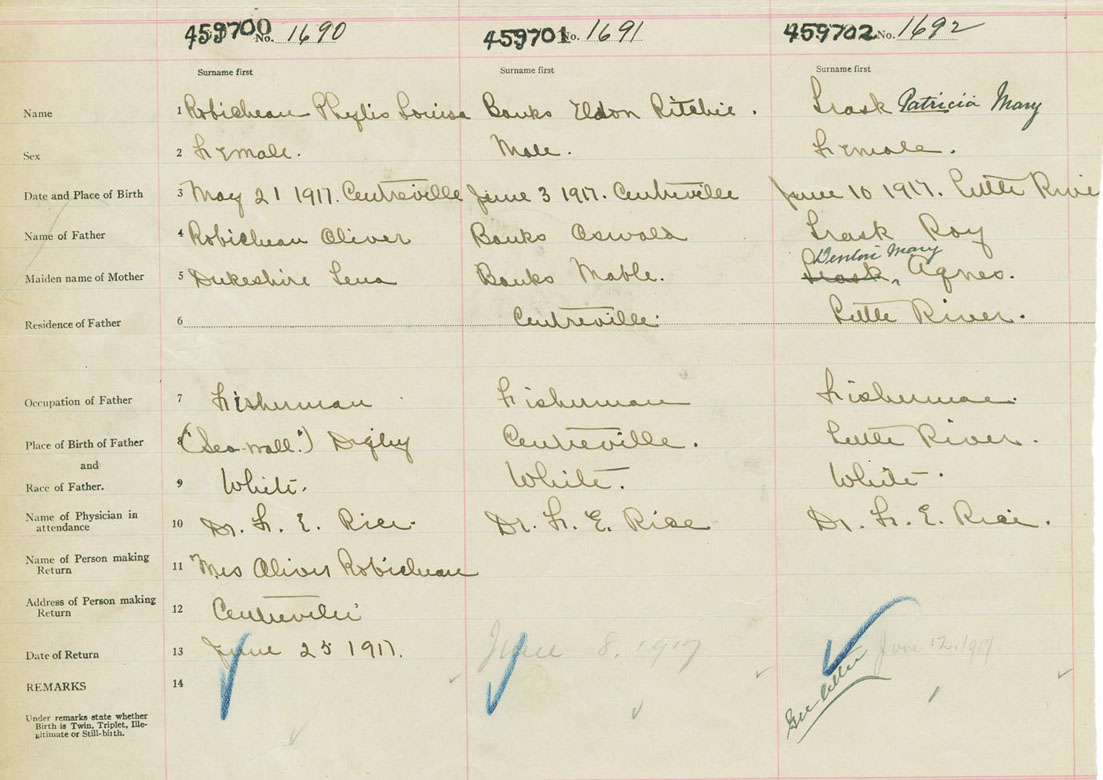 459700 No. 1690 459701 No. 1691 459702 No. 1692
Surname first Surname first Surname first
Name 1 Robicheau Phyllis Louisa Banks Eldon Ritchie. Trask Patricia Mary
Sex 2 Female. Male. Female.
Date and Place of Birth 3 May 21 1917. Centreville June 3 1917. Centreville June 10 1917. Little River
Name of Father 4 Robicheau Oliver Banks Oswald Trask Roy
Denton Mary
Maiden name of Mother 5 Dukeshire Lena Banks Mable. Trask, Agnes.
Residence of Father 6 Centreville. Little River.
Occupation of Father 7 Fisherman Fisherman Fisherman.
Place of Birth of Father 8 ("Sea-wall") Digby Centreville. Little River.
and
Race of Father. 9 White. White. White.
Name of Physician in attendance 10 Dr. F. E. Rice. Dr. F. E. Rice Dr. F. E. Rice.
Name of Person making Return 11 Mrs Oliver Robicheau
Address of Person making Return 12 Centreville
Date of Return 13 June 25 1917. June 8, 1917 June 12, 1917
REMARKS 14
See letter
Under remarks state whether
Birth is Twin, Triplet, Ille-
gitimate or Still-birth.